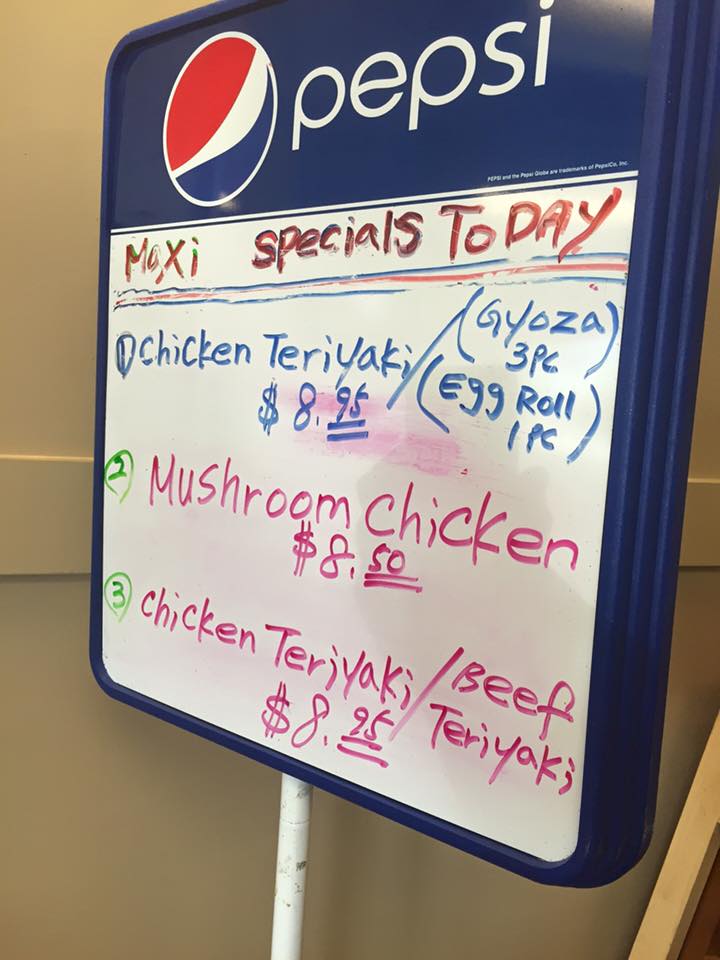 pepsi
PEPSI and the Pepsi Globe are trademarks of PepsiCo, Inc.
Maxi Specials ToDAY
① Chicken Teriyaki / (Gyoza)
3PC
$8.95 (Egg Roll)
1PC
② Mushroom Chicken
$8.50
③ Chicken Teriyaki / Beef
$8.95 Teriyaki